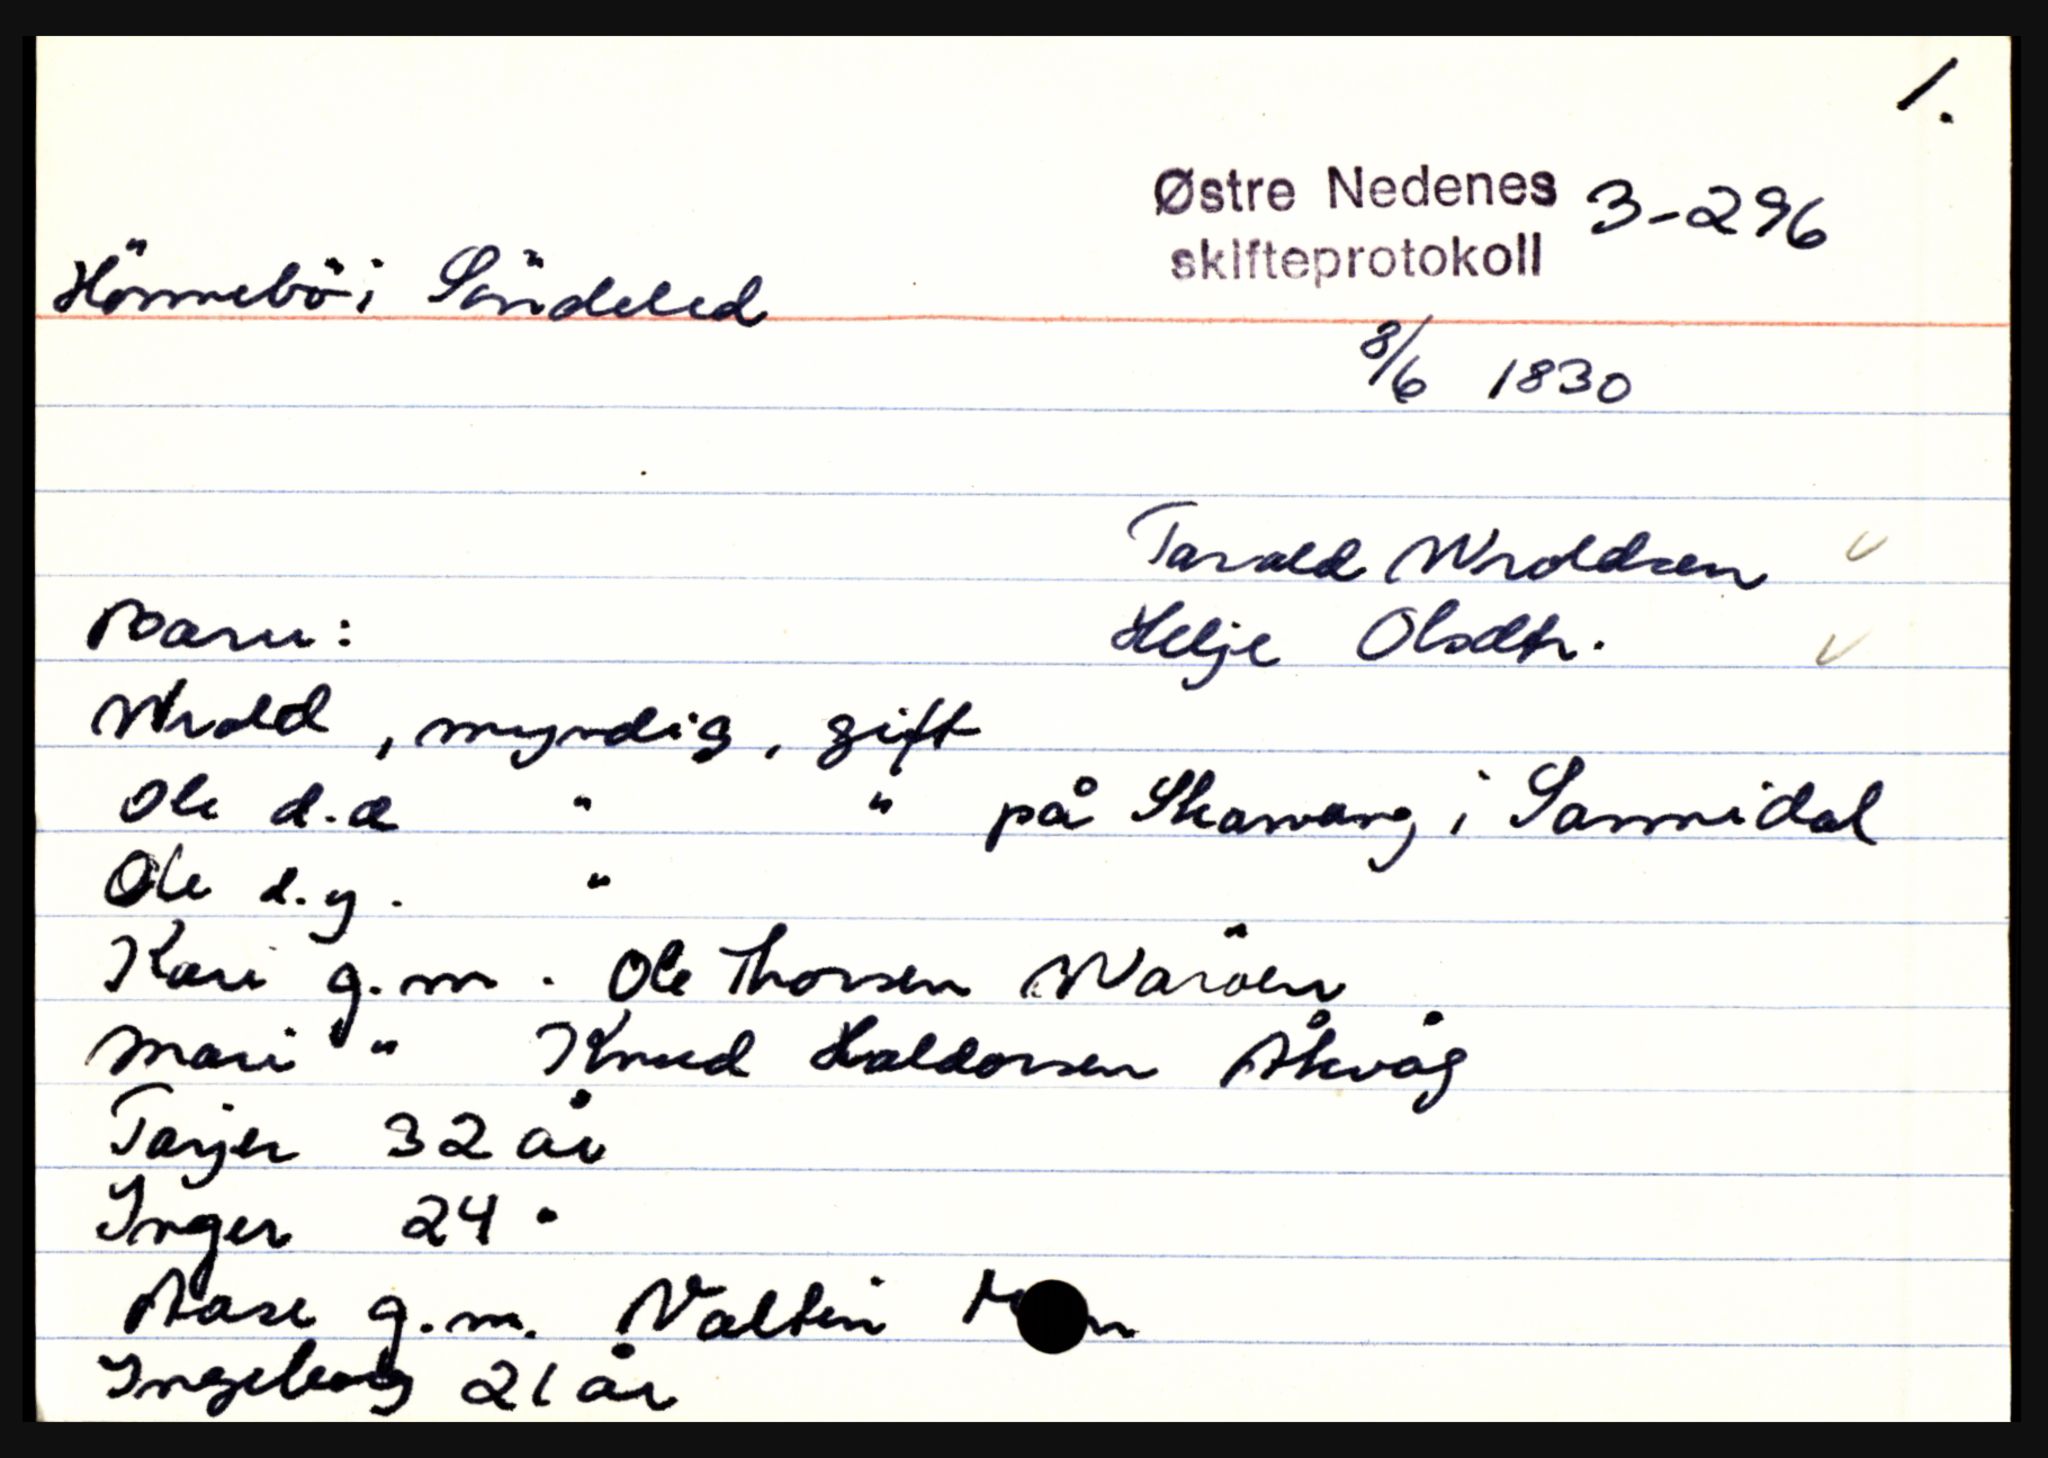 1.
Østre Nedenes 3-296
skifteprotokoll
Hönnebö i Söndeled
8/6 1830
Tarald Wroldsen
Barn:
Helje Olsdtr.
Wrold, myndig, gift
Ole d.e " " på Skarvang i Sannidal
Ole d.y. "
Kari g.m. Ole Thorsen Waröen
Mari " Knud Haldorsen Åkvåg
Tarjer 32 år
Inger 24 "
Aase g.m. Valtin
Ingeborg 21 år